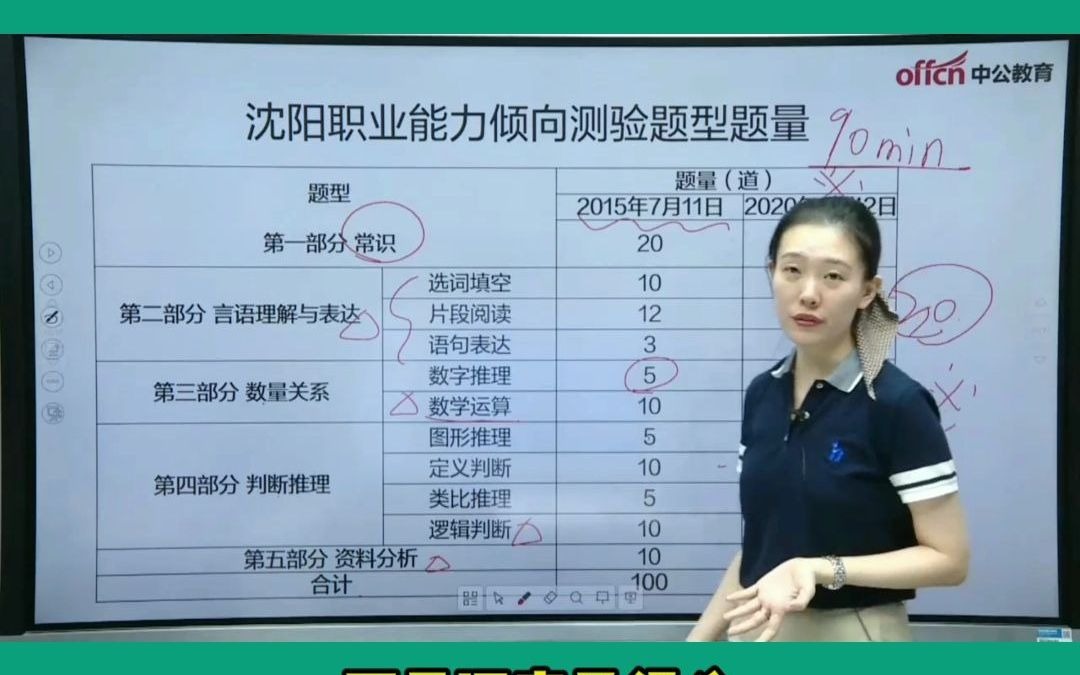 offcn 中公教育
沈阳职业能力倾向测验题型题量
90min
题型 题量（道）
2015年7月11日 2020年
2日
第一部分 常识 20
第二部分 言语理解与表达 选词填空 10
片段阅读 12
20
语句表达 3
第三部分 数量关系 数字推理 5
数学运算 10
第四部分 判断推理 图形推理 5
定义判断 10
类比推理 5
逻辑判断 10
第五部分 资料分析 10
合计 100